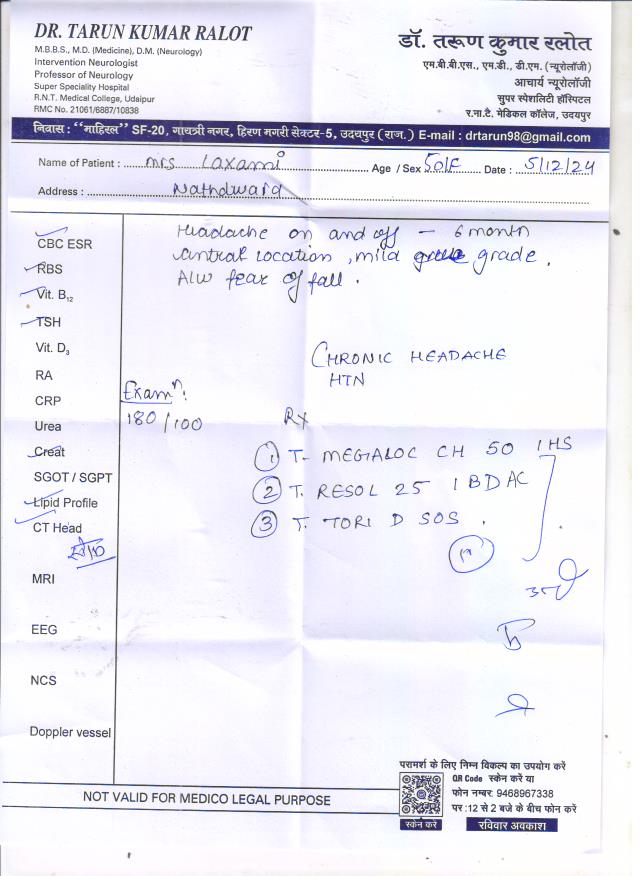 DR. TARUN KUMAR RALOT
M.B.B.S., M.D. (Medicine), D.M. (Neurology)
Intervention Neurologist
Professor of Neurology
Super Speciality Hospital
R.N.T. Medical College, Udaipur
RMC No. 21061/6887/10838
डॉ. तरूण कुमार रलोत
एम.बी.बी.एस., एम.डी., डी.एम. (न्यूरोलॉजी)
आचार्य न्यूरोलॉजी
सुपर स्पेशलिटी हॉस्पिटल
र.ना.टै. मेडिकल कॉलेज, उदयपुर
निवास : "माहिरल" SF-20, गायत्री नगर, हिरण मगरी सेक्टर-5, उदयपुर (राज.) E-mail : drtarun98@gmail.com
Name of Patient : Mrs Laxami Age / Sex 50/F Date : 5/12/24
Address : Nathdwara
CBC ESR
RBS
Vit. B12
TSH
Vit. D3
RA
CRP
Urea
Creat
SGOT / SGPT
Lipid Profile
CT Head
MRI
EEG
NCS
Doppler vessel
Headache on and off - 6 month
central location, mild grade.
A/w fear of fall.
CHRONIC HEADACHE
HTN
Examn:
180/100
Rx
① T. MEGALOC CH 50 1HS
② T. RESOL 25 1BDAC
③ T. TORI D SOS.
परामर्श के लिए निम्न विकल्प का उपयोग करें
QR Code स्केन करें या
फोन नम्बर: 9468967338
पर :12 से 2 बजे के बीच फोन करें
स्केन करें
रविवार अवकाश
NOT VALID FOR MEDICO LEGAL PURPOSE